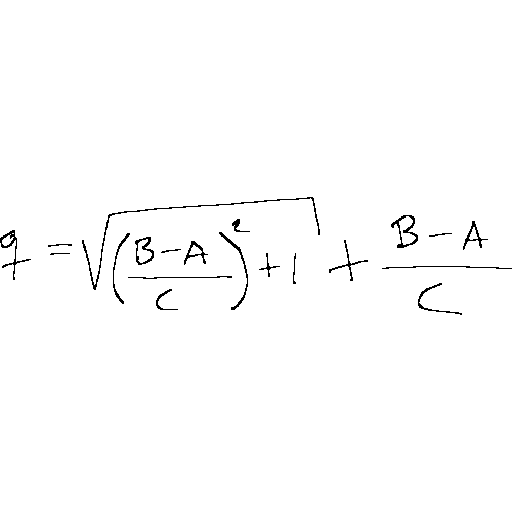 q = \sqrt{\left(\frac{B-A}{C}\right)^2+1} + \frac{B-A}{C}